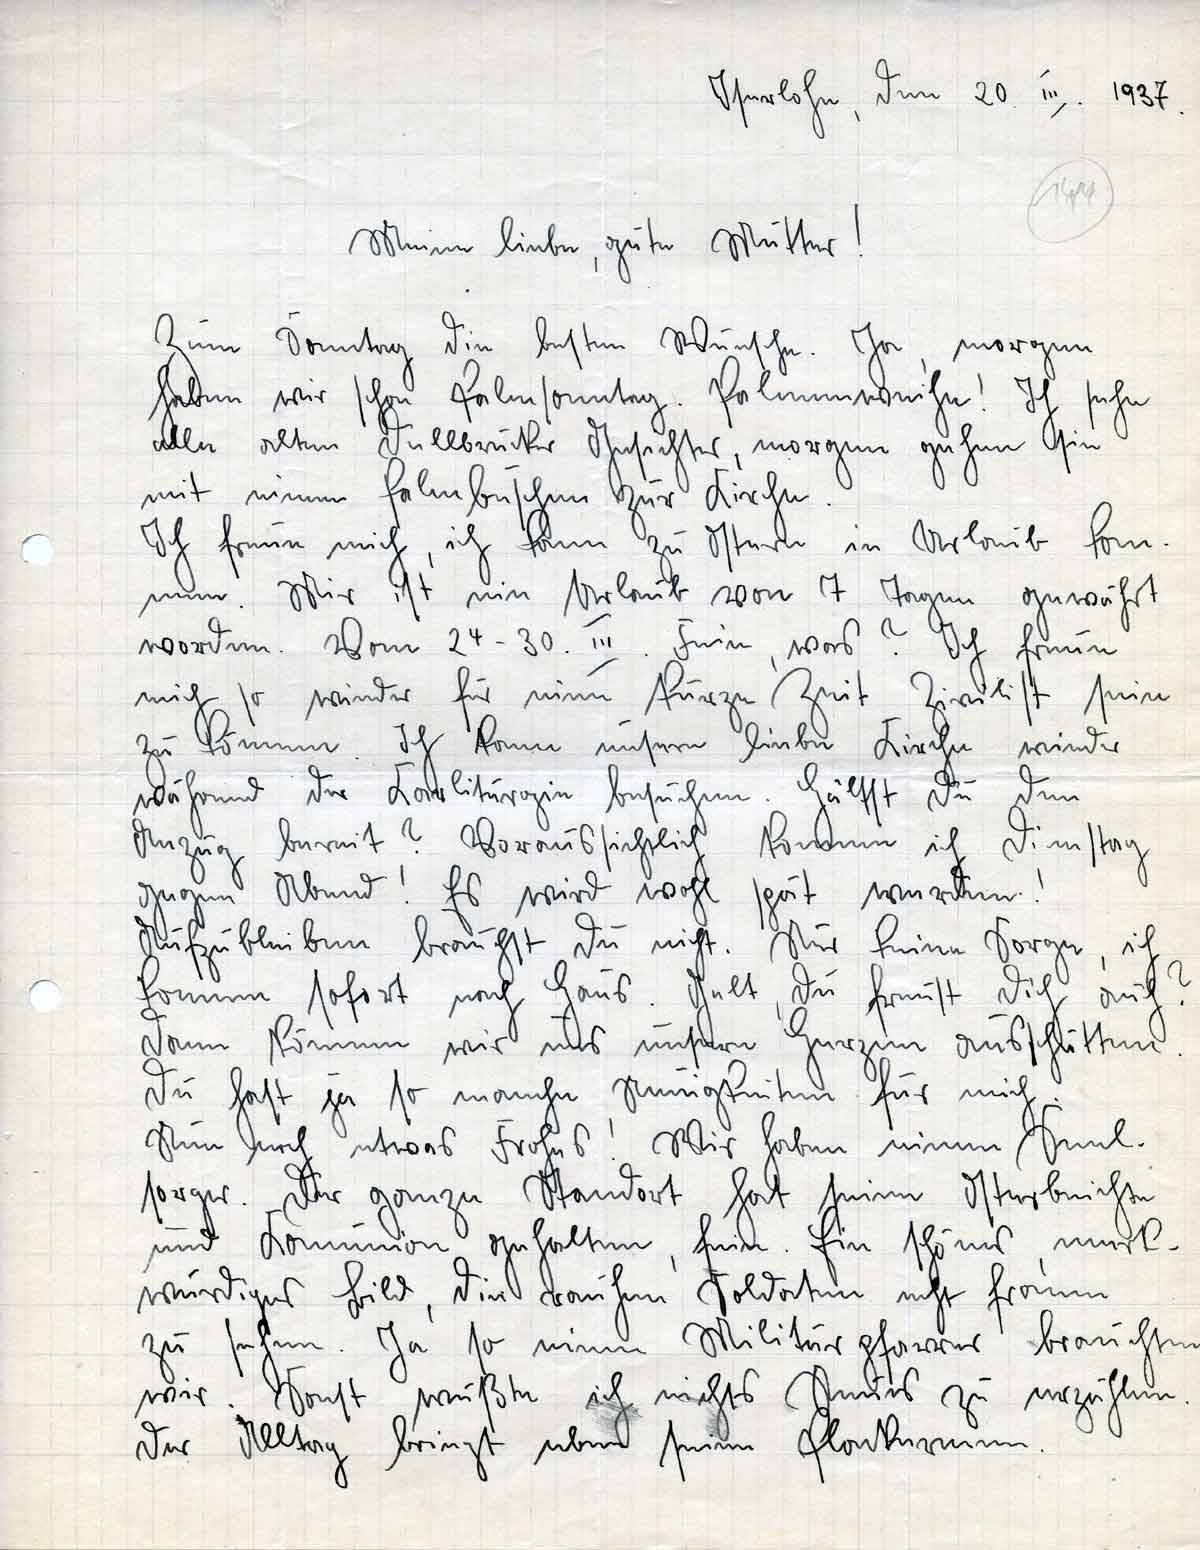 Iserlohn, den 20. III. 1937.
144
Meine liebe, gute Mutter!
Zum Sonntag die besten Wünsche. Ja, morgen
haben wir schon Palmsonntag. Palmenweihe! Ich sehe
alle alten Dellbrücker Gesichter, morgen gehen sie
mit einem Palmbuschen zur Kirche.
Ich freue mich, ich kann zu Ostern in Urlaub kom-
men. Mir ist ein Urlaub von 7 Tagen gewährt
worden. Vom 24-30. III. Fein, was? Ich freue
mich so wieder für eine kurze Zeit Zivilist sein
zu können. Ich kann unsere liebe Kirche wieder
während der Karliturgie besuchen. Hälst Du den
Anzug bereit? Voraussichtlich komme ich Dienstag
gegen Abend! Es wird wohl spät werden!
Aufzubleiben brauchst Du nicht. Nur keine Sorge, ich
komme sofort nach Haus. Gelt, Du freust Dich auch?
Dann können wir uns unsere Herzen ausschütten.
Du hast ja so manche Neuigkeiten für mich.
Nun noch etwas Frohes! Wir haben einen Seel-
sorger. Der ganze Standort hat seine Osterbeichte
und Kommunion gehalten, fein. Ein schönes, merk-
würdiges Bild, die rauhen Soldaten echt fromm
zu sehen. Ja so einen Militärpfarrer brauchten
wir. Sonst wüßte ich nichts Neues zu erzählen.
Der Alltag bringt eben seine Plackereien.